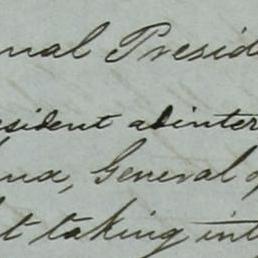 nal Presid
esident adinter
na, General
t taking int